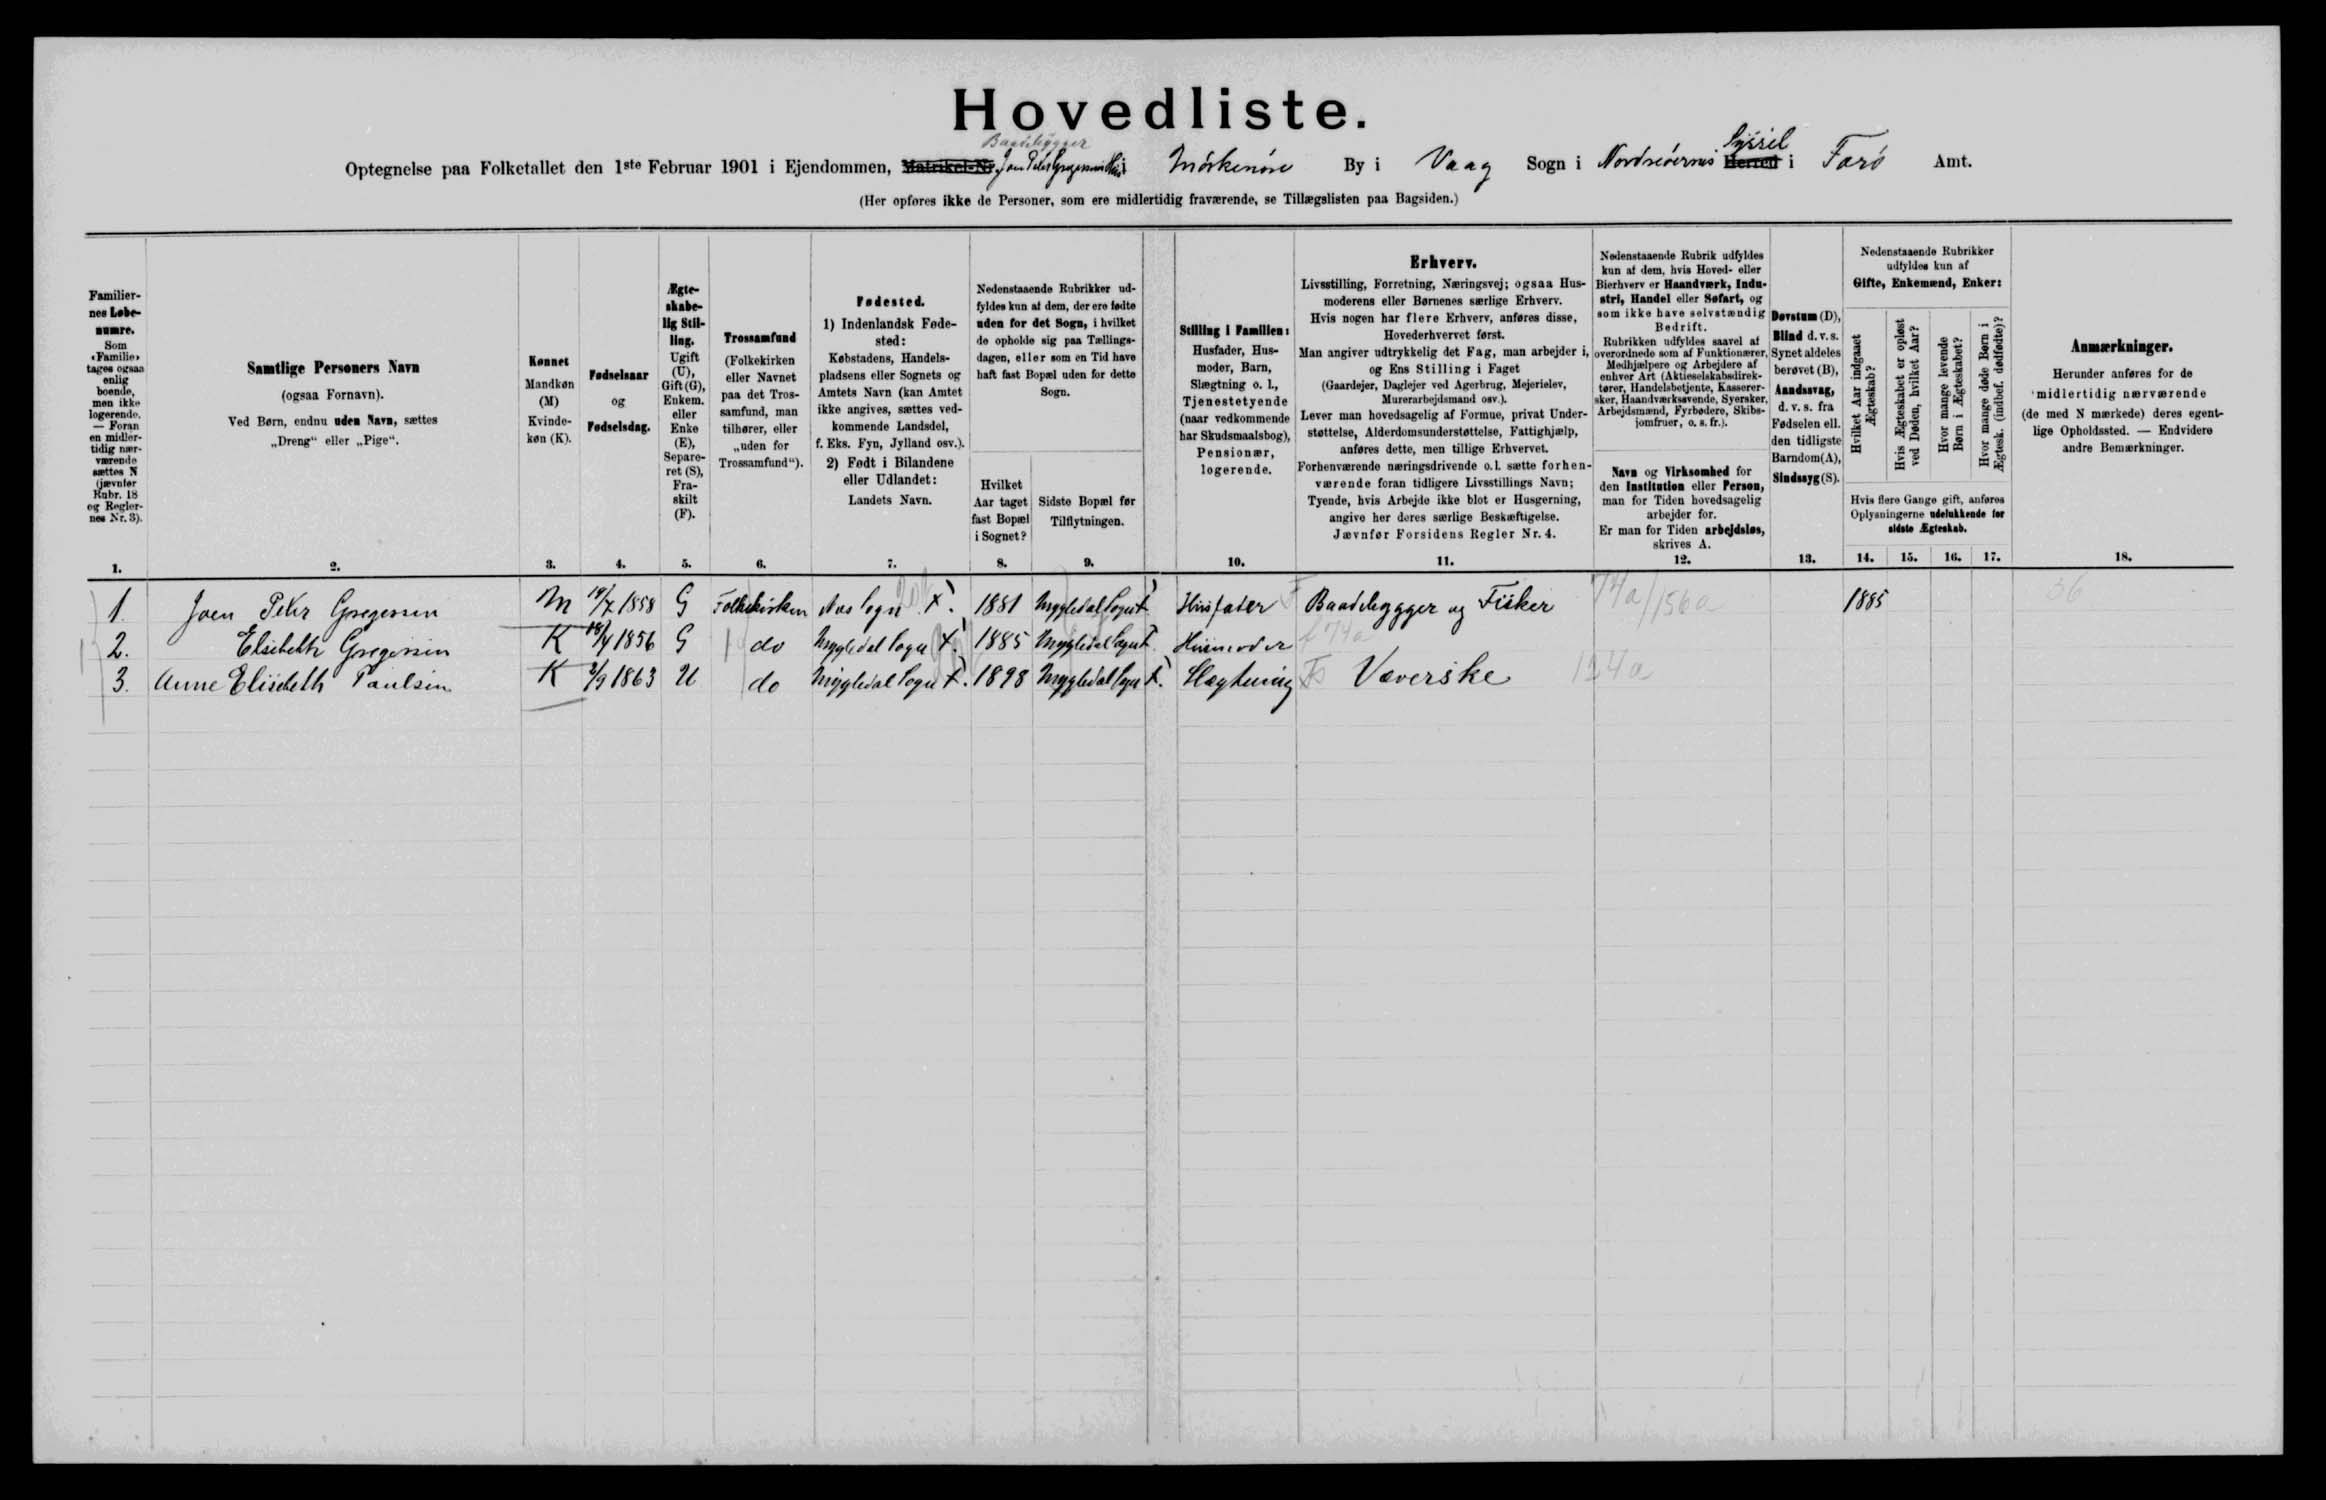 Hovedliste.
Baadebygger
Optegnelse paa Folketallet den 1ste Februar 1901 i Ejendommen, Matrikel-Nr. Joen Peter Gregersens Hus i Mørkenøre By i Vaag Sogn i Nordreöernes Herred Syssel i Farö Amt.
(Her opføres ikke de Personer, som ere midlertidig fraværende, se Tillægslisten paa Bagsiden.)
Familier-
nes Løbe-
numre.
Som
«Familie»
tages ogsaa
enlig
boende,
men ikke
logerende.
— Foran
en midler-
tidig nær-
værende
sættes N
(jævnfør
Rubr. 18
og Regler-
nes Nr. 3).
1.
Samtlige Personers Navn
(ogsaa Fornavn).
Ved Børn, endnu uden Navn, sættes
„Dreng“ eller „Pige“.
2.
Kønnet
Mandkøn
(M)
Kvinde-
køn (K).
3.
Fødselsaar
og
Fødselsdag.
4.
Ægte-
skabe-
lig Stil-
ling.
Ugift
(U),
Gift (G),
Enkem.
eller
Enke
(E),
Separe-
ret (S),
Fra-
skilt
(F).
5.
Trossamfund
(Folkekirken
eller Navnet
paa det Tros-
samfund, man
tilhører, eller
„uden for
Trossamfund“).
6.
Fødested.
1) Indenlandsk Føde-
sted:
Købstadens, Handels-
pladsens eller Sognets og
Amtets Navn (kan Amtet
ikke angives, sættes ved-
kommende Landsdel,
f. Eks. Fyn, Jylland osv.).
2) Født i Bilandene
eller Udlandet:
Landets Navn.
7.
Nedenstaaende Rubrikker ud-
fyldes kun af dem, der ere fødte
uden for det Sogn, i hvilket
de opholde sig paa Tællings-
dagen, eller som en Tid have
haft fast Bopæl uden for dette
Sogn.
Hvilket
Aar taget
fast Bopæl
i Sognet?
8.
Sidste Bopæl før
Tilflytningen.
9.
Stilling i Familien:
Husfader, Hus-
moder, Barn,
Slægtning o. l.,
Tjenestetyende
(naar vedkommende
har Skudsmaalsbog),
Pensionær,
logerende.
10.
Erhverv.
Livsstilling, Forretning, Næringsvej; ogsaa Hus-
moderens eller Børnenes særlige Erhverv.
Hvis nogen har flere Erhverv, anføres disse,
Hovederhvervet først.
Man angiver udtrykkelig det Fag, man arbejder i,
og Ens Stilling i Faget
(Gaardejer, Daglejer ved Agerbrug, Mejerielev,
Murerarbejdsmand osv.).
Lever man hovedsagelig af Formue, privat Under-
støttelse, Alderdomsunderstøttelse, Fattighjælp,
anføres dette, men tillige Erhvervet.
Forhenværende næringsdrivende o. l. sætte forhen-
værende foran tidligere Livsstillings Navn;
Tyende, hvis Arbejde ikke blot er Husgerning,
angive her deres særlige Beskæftigelse.
Jævnfør Forsidens Regler Nr. 4.
11.
Nedenstaaende Rubrik udfyldes
kun af dem, hvis Hoved- eller
Bierhverv er Haandværk, Indu-
stri, Handel eller Søfart, og
som ikke have selvstændig
Bedrift.
Rubrikken udfyldes saavel af
overordnede som af Funktionærer,
Medhjælpere og Arbejdere af
enhver Art (Aktieselskabsdirek-
tører, Handelsbetjente, Kasserer-
sker, Haandværkssvende, Syersker,
Arbejdsmænd, Fyrbødere, Skibs-
jomfruer, o. s. fr.).
Navn og Virksomhed for
den Institution eller Person,
man for Tiden hovedsagelig
arbejder for.
Er man for Tiden arbejdsløs,
skrives A.
12.
Døvstum (D),
Blind d. v. s.
Synet aldeles
berøvet (B),
Aandssvag,
d. v. s. fra
Fødselen ell.
den tidligste
Barndom (A),
Sindssyg (S).
13.
Nedenstaaende Rubrikker
udfyldes kun af
Gifte, Enkemænd, Enker:
Hvilket Aar indgaaet
Ægteskab?
Hvis Ægteskabet er opløst
ved Døden, hvilket Aar?
Hvor mange levende
Børn i Ægteskabet?
Hvor mange døde Børn i
Ægtesk. (indbef. dødfødte)?
Hvis flere Gange gift, anføres
Oplysningerne udelukkende for
sidste Ægteskab.
14. 15. 16. 17.
Anmærkninger.
Herunder anføres for de
midlertidig nærværende
(de med N mærkede) deres egent-
lige Opholdssted. — Endvidere
andre Bemærkninger.
18.
1. Joen Peter Gregersen M 1858 G Folkekirken Næs Sogn F. 1881 Mygledal Sogn F. Husfader F Baadebygger og Fisker 74a/156a 1885 36
2. Elisebeth Gregersen K 18/4 1856 G do Mygledal Sogn F. 1885 Mygledal Sogn F. Husmoder f 74a
3. Anne Elisebeth Paulsen K 2/9 1863 U do Mygledal Sogn F. 1898 Mygledal Sogn F. Slægtning Fs Væverske 124a